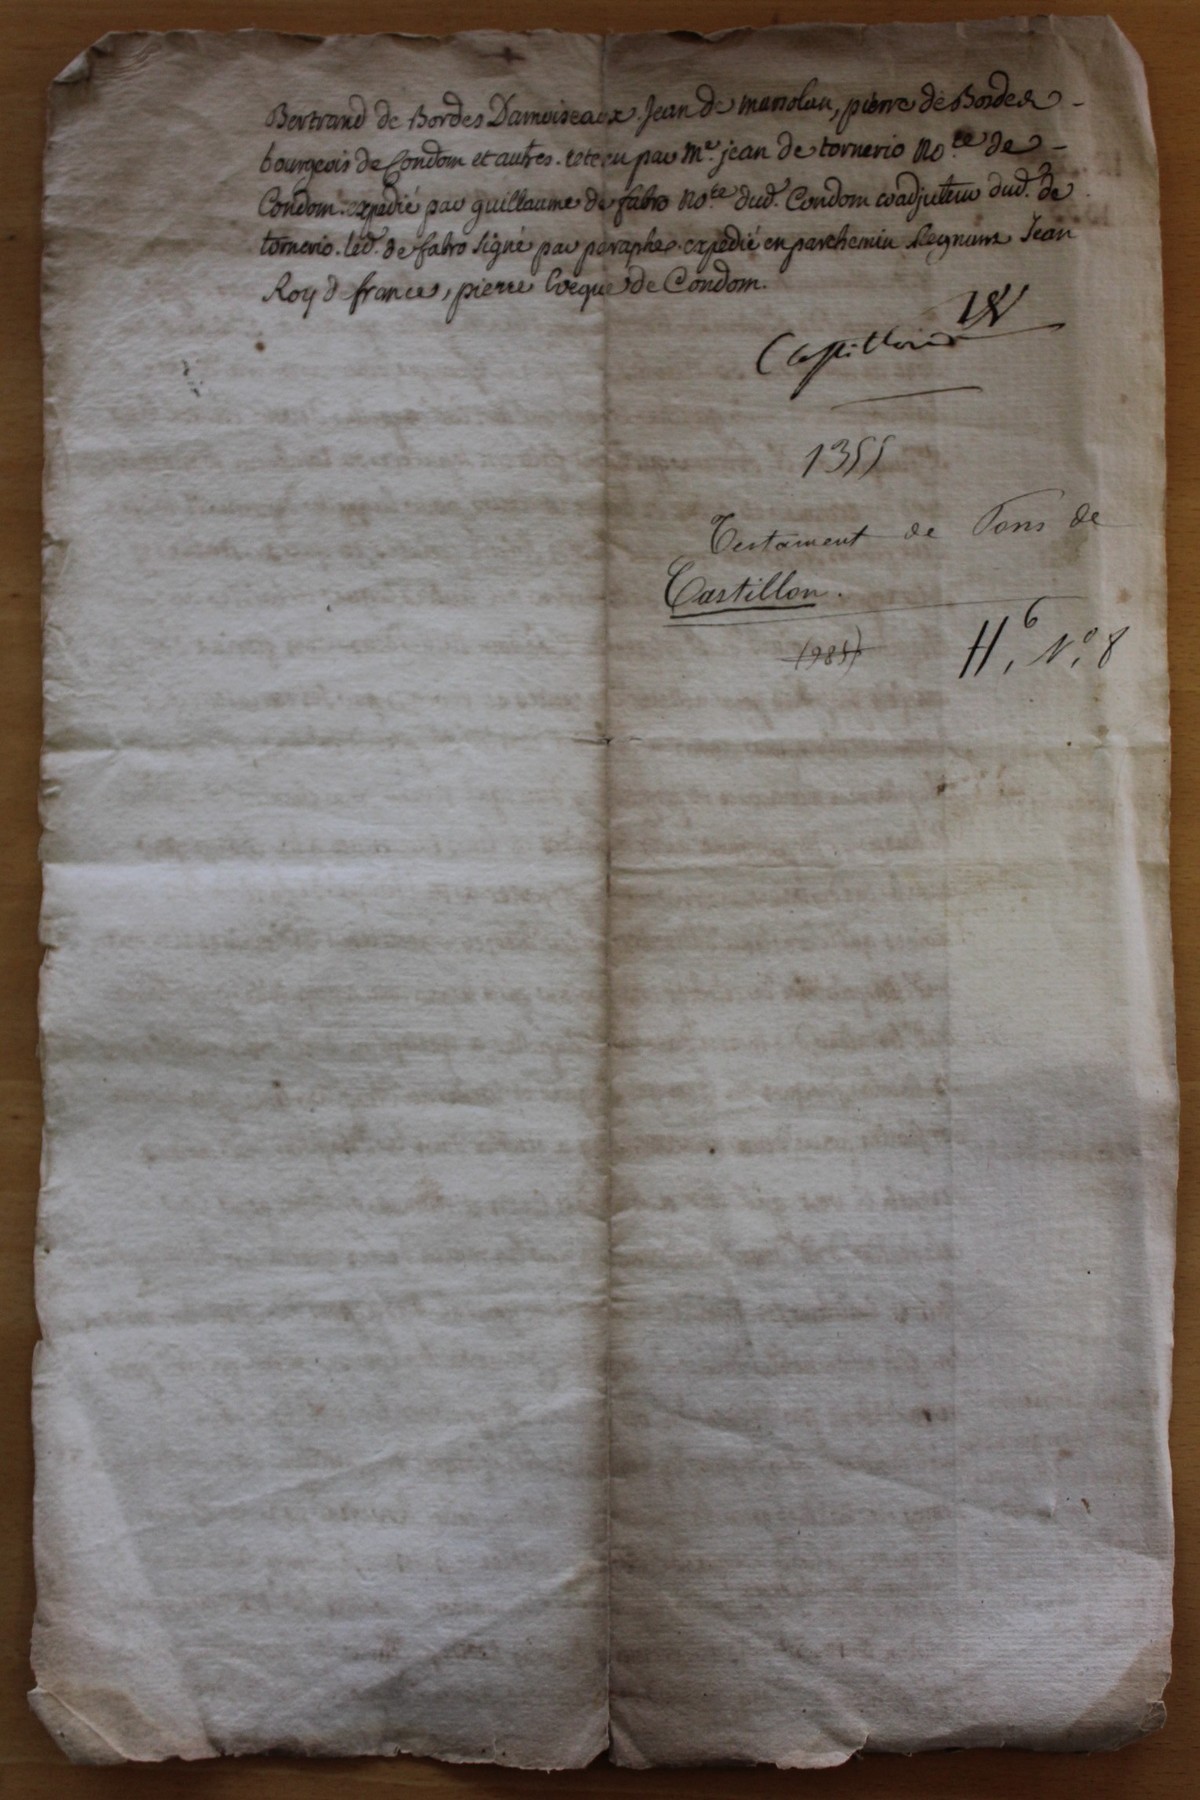 Bertrand de Bordes Damoiseaux. Jean de manolau, pierre de Bordes -
bourgeois de Condom et autres. retenu par Me. jean de tornerio No.re de -
Condom. expedié par guillaume de fabro No.re dud. Condom coadjuteur dud. de
tornerio. led. de fabro signé par paraphe. expedié en parchemin Regnant Jean
Roy d france, pierre Eveque de Condom.
1355
Testament de Pons de
Castillon.
H.6 No. 8